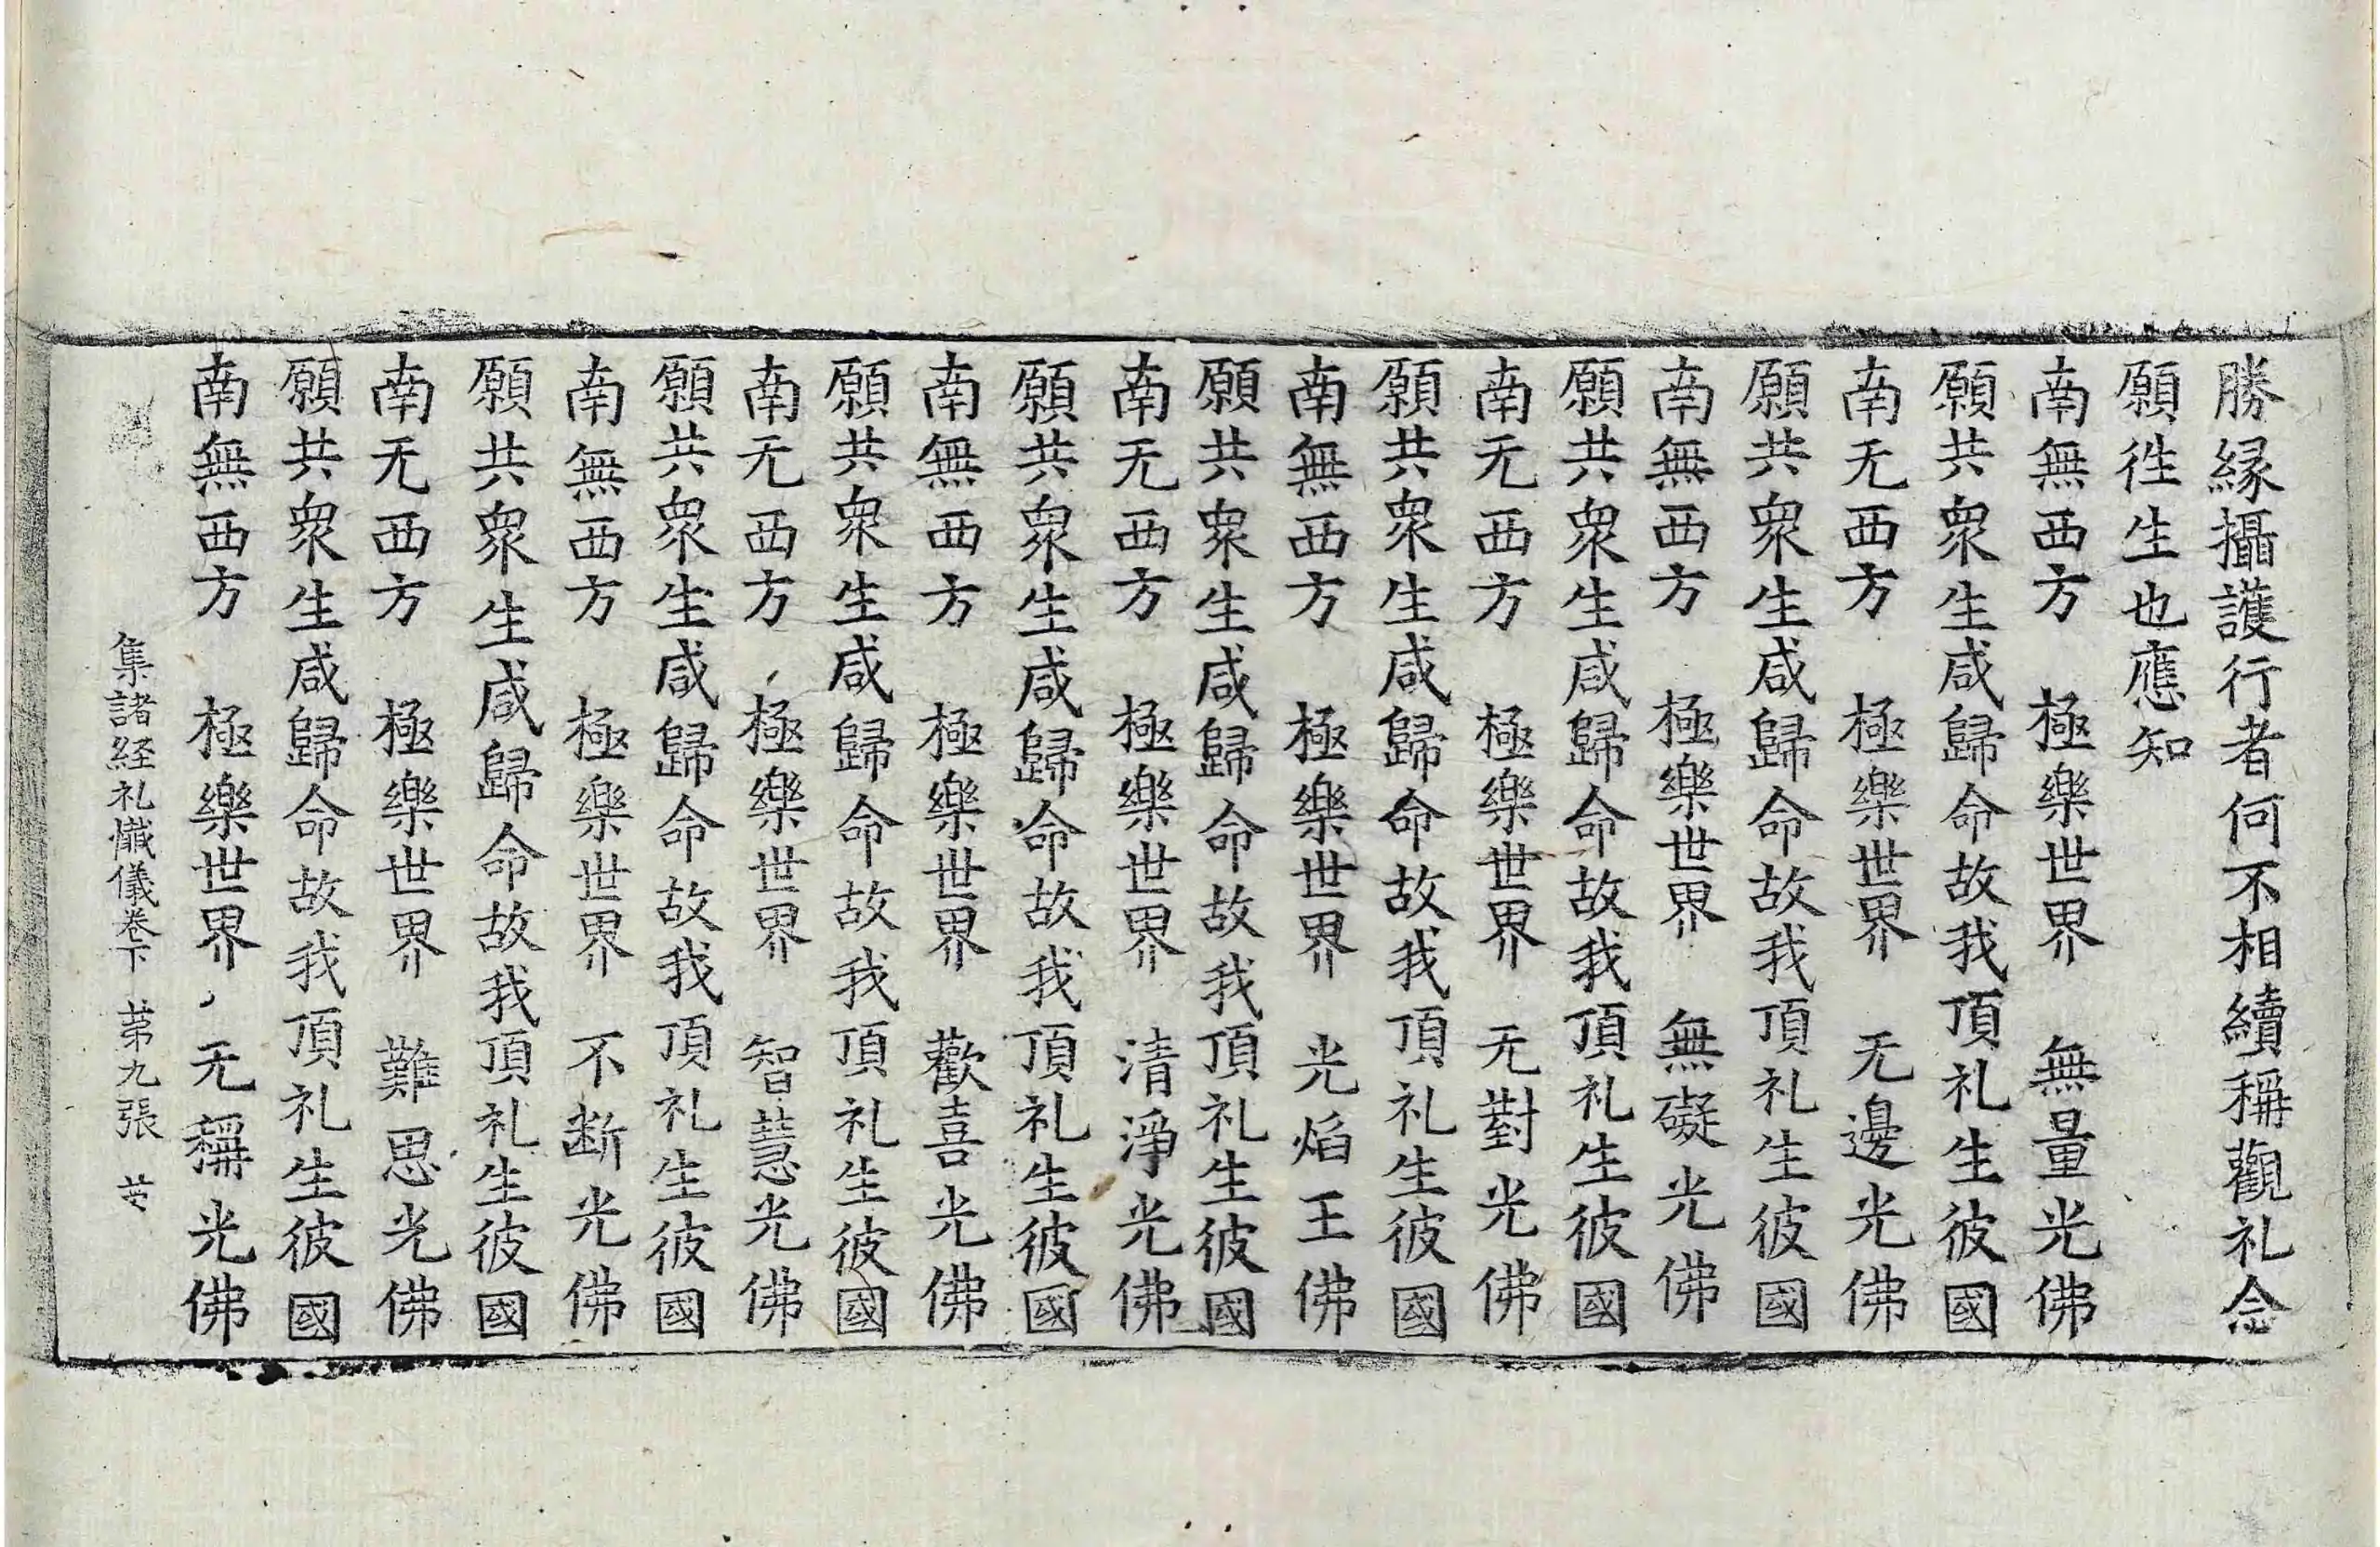 勝縁攝護行者何不相續稱觀礼念
願徃生也應知
南無西方　極樂世界　無量光佛
願共衆生咸歸命故我頂礼生彼國
南无西方　極樂世界　无邊光佛
願共衆生咸歸命故我頂礼生彼國
南無西方　極樂世界　無礙光佛
願共衆生咸歸命故我頂礼生彼國
南无西方　極樂世界　无對光佛
願共衆生咸歸命故我頂礼生彼國
南無西方　極樂世界　光焰王佛
願共衆生咸歸命故我頂礼生彼國
南无西方　極樂世界　清淨光佛
願共衆生咸歸命故我頂礼生彼國
南無西方　極樂世界　歡喜光佛
願共衆生咸歸命故我頂礼生彼國
南无西方　極樂世界　智慧光佛
願共衆生咸歸命故我頂礼生彼國
南無西方　極樂世界　不断光佛
願共衆生咸歸命故我頂礼生彼國
南无西方　極樂世界　難思光佛
願共衆生咸歸命故我頂礼生彼國
南無西方　極樂世界　无稱光佛
集諸経礼懺儀卷下　苐九張